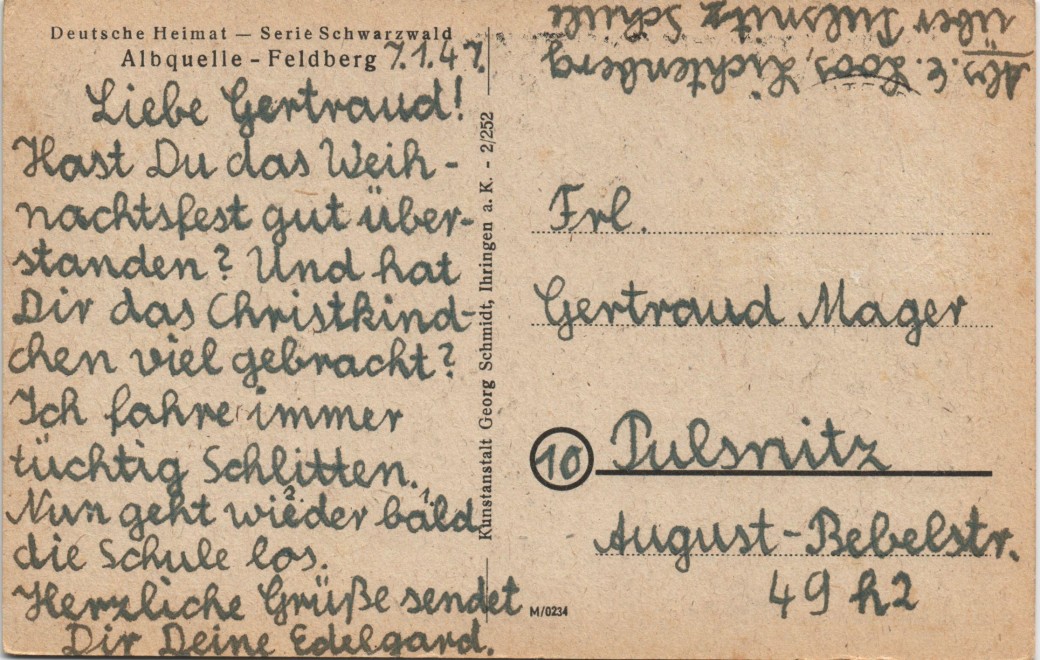 Deutsche Heimat — Serie Schwarzwald
Albquelle - Feldberg 7.1.47.
Liebe Gertraud!
Hast Du das Weih-
nachtsfest gut über-
standen? Und hat
Dir das Christkind-
chen viel gebracht?
Ich fahre immer
tüchtig Schlitten.
Nun geht wieder bald
2. 1.
die Schule los.
Herzliche Grüße sendet
Dir Deine Edelgard.
Kunstanstalt Georg Schmidt, Ihringen a. K. - 2/252
M/0234
Abs. E. Loos, Lichtenberg
über Pulsnitz Schule
Frl.
Gertraud Mager
10 Pulsnitz
August-Bebelstr.
49 h2